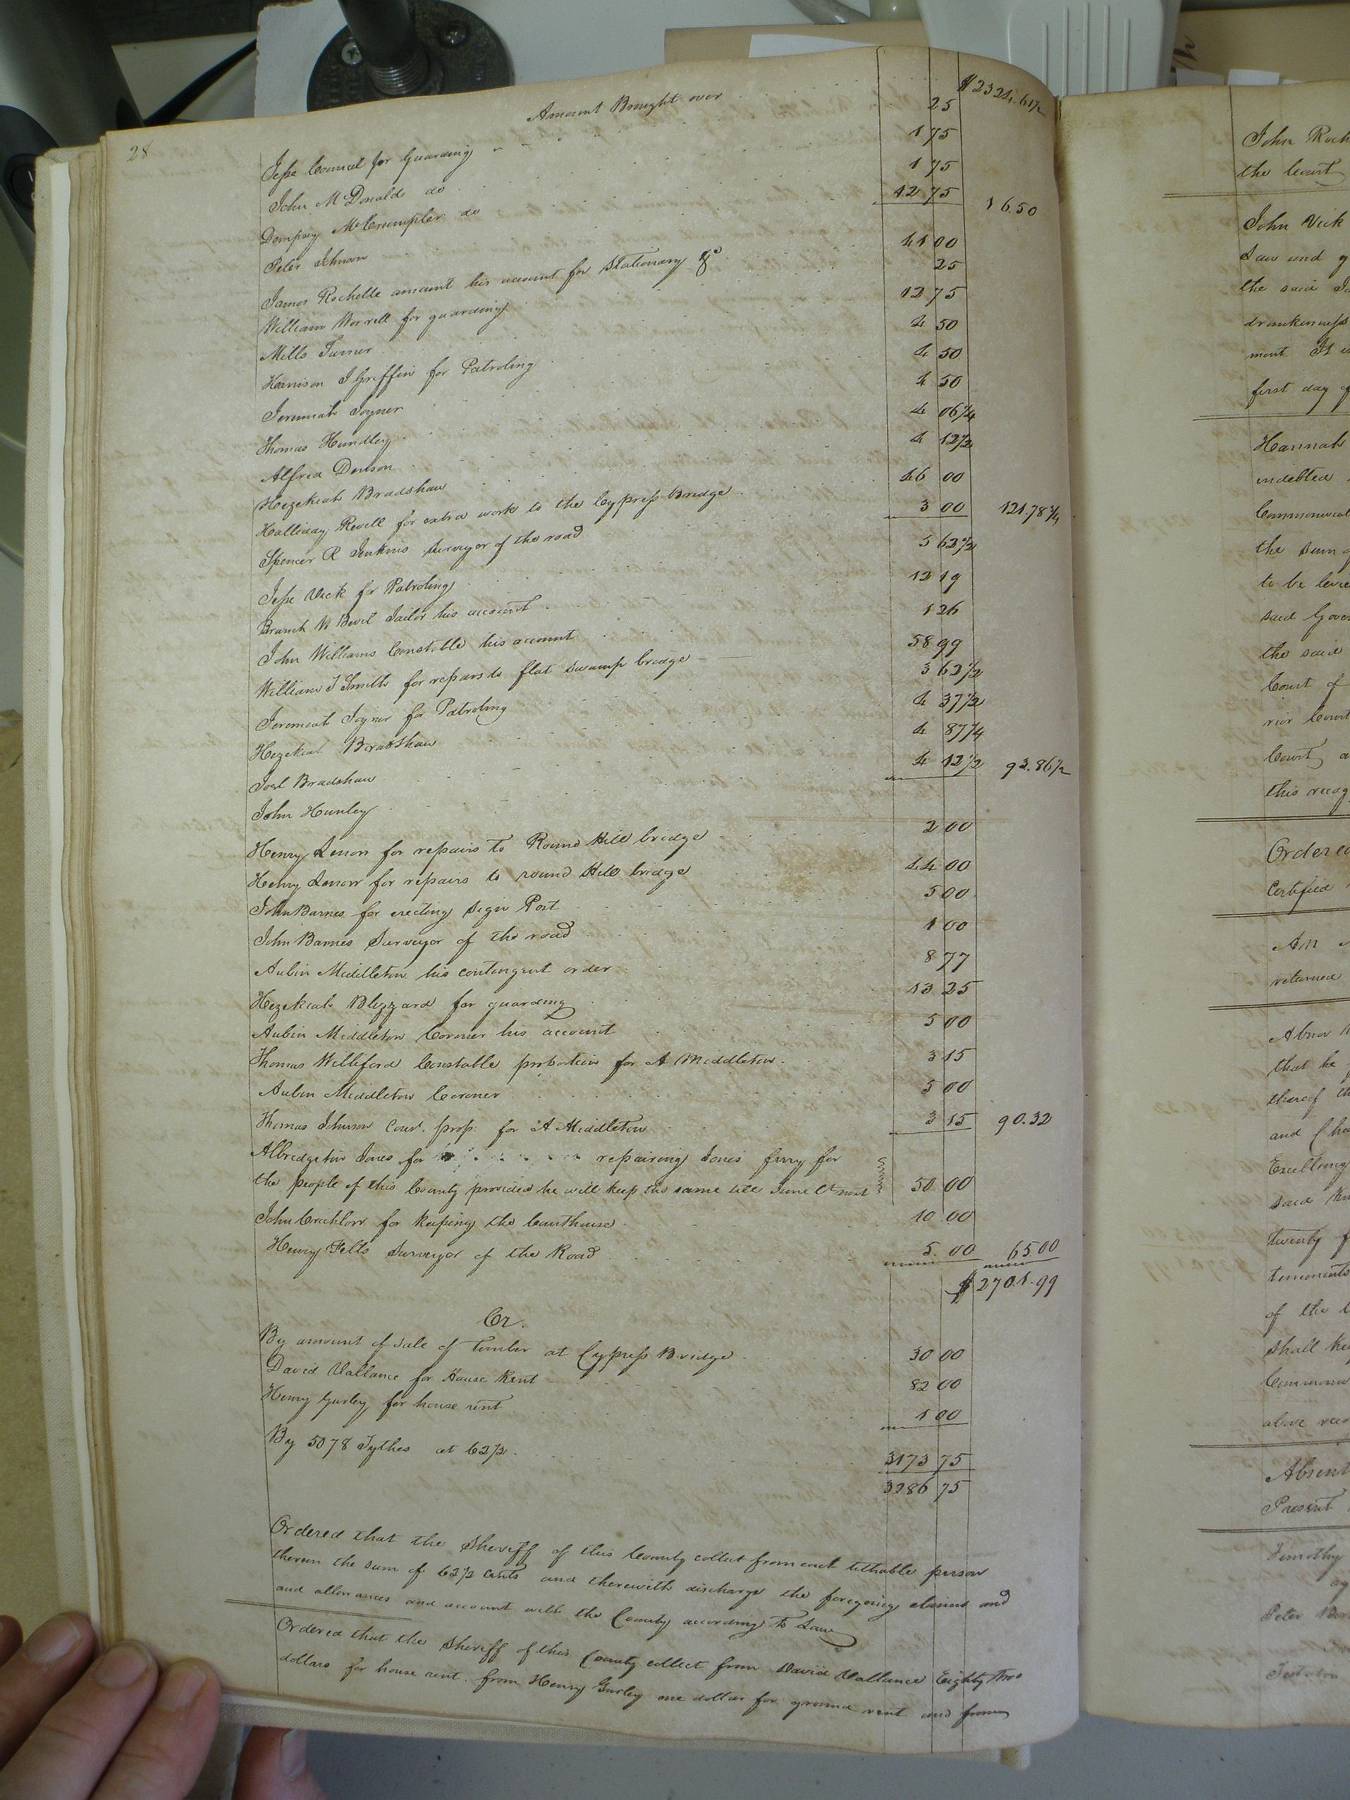 28
Amount Brought over $2324.61½
Jesse Council for Guarding 25
John McDonald do 1 75
Dempsey do 1 75
Peter 12 75 16.50
James Rochelle amount his account for Stationary &c 41 00
William Worrell for guarding 25
Mills Turner 12 75
Harrison J Griffin for Patroling 4 50
Jeremiah Joyner 4 50
Thomas Hundley 4 50
Alfred Denson 4 06¼
Hezekiah Bradshaw 4 12½
Holliday Revell for extra work to the Cypress Bridge 46 00
Spencer R Jenkins Surveyor of the road 3 00 121.78¾
Jesse Vick for Patroling 5 62½
Branch W Bevil Jailor his account 12 19
John Williams Constable his account 1 26
William J Smith for repairs to flat swamp bridge 58 99
Jeremiah Joyner for Patroling 3 62½
Hezekiah Bradshaw 4 37½
Joel Bradshaw 4 87¼
John Hunley 4 12½ 92.86½
Henry for repairs to Round Hill bridge 2 00
Henry for repairs to round Hill bridge 44 00
John Barnes for erecting Sign Post 5 00
John Barnes Surveyor of the road 1 00
Aubin Middleton his contingent order 8 77
Hezekiah Blizzard for guarding 13 25
Aubin Middleton Coroner his account 5 00
Thomas Williford Constable proportion for A Middleton 3 15
Aubin Middleton Coroner 5 00
Thomas Johnson Const. prop. for A Middleton 3 15 90.32
Albridgeton Jones for repairing Jones ferry for
the people of this County provided he will keep the same till June Ct next 50 00
John Crichlow for keeping the Courthouse 10 00
Henry Felts Surveyor of the Road 5.00 65.00
$2701.99
Cr.
By amount of sale of Timber at Cypress Bridge 30 00
David Vallance for House Rent 82 00
Henry Gurley for house rent 1 00
By 5078 Tythes at 62½ 3173 75
3286 75
Ordered that the Sheriff of this County collect from each tithable person
therein the sum of 62½ cents and therewith discharge the foregoing claims and
allowances and account with the County according to Law
Ordered that the Sheriff of this County collect from David Vallance Eighty two
dollars for house rent. from Henry Gurley one dollar for ground rent and from
John Roch
the Court
John Vick
Law and g
the said
drunkenness
ment It is
first day of
Hannah
indebted
Commonweal
the sum of
to be levied
said Gover
the said
Court of
rior Court
Court a
this recog
Ordered
Certified
An
returned
that he
thereof th
and
Excellency
said
twenty f
tenements
of the
shall kee
Commonw
above reco
Absent
Present
Timothy
Peter